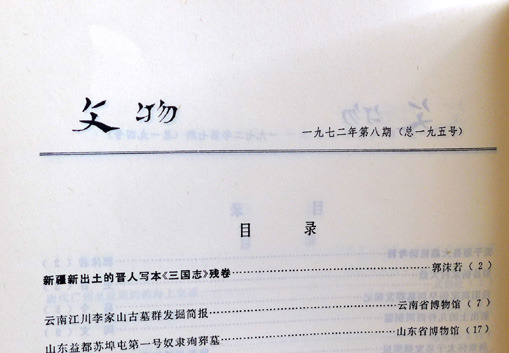 文物
一九七二年第八期（总一九五号）
目录
新疆新出土的晋人写本《三国志》残卷……郭沫若（2）
云南江川李家山古墓群发掘简报……云南省博物馆（7）
山东益都苏埠屯第一号奴隶殉葬墓……山东省博物馆（17）